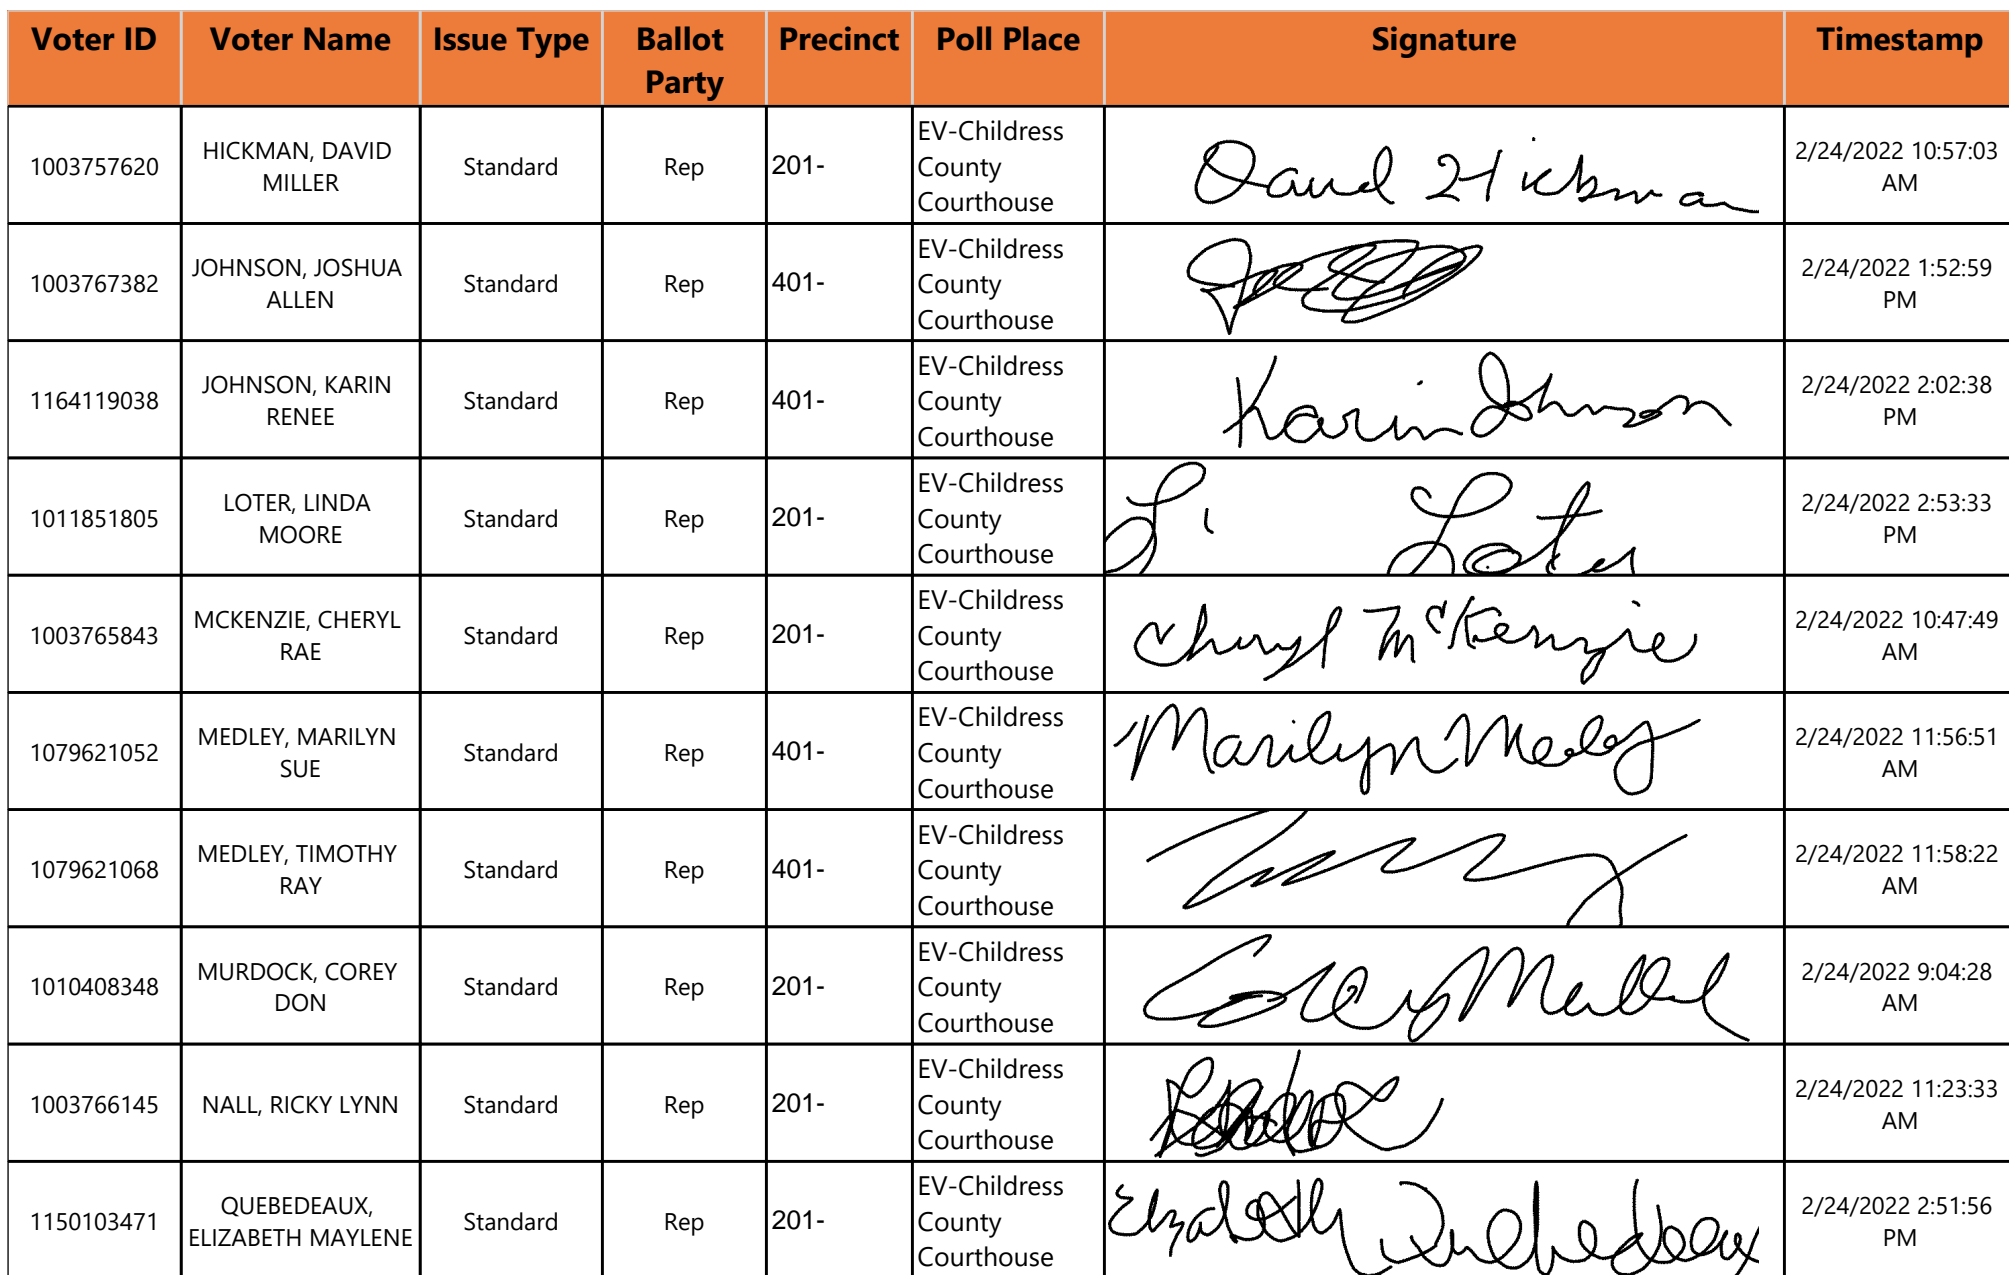 Voter ID Voter Name Issue Type Ballot Party Precinct Poll Place Signature Timestamp
1003757620 HICKMAN, DAVID MILLER Standard Rep 201- EV-Childress County Courthouse David Hickman 2/24/2022 10:57:03 AM
1003767382 JOHNSON, JOSHUA ALLEN Standard Rep 401- EV-Childress County Courthouse 2/24/2022 1:52:59 PM
1164119038 JOHNSON, KARIN RENEE Standard Rep 401- EV-Childress County Courthouse Karin Johnson 2/24/2022 2:02:38 PM
1011851805 LOTER, LINDA MOORE Standard Rep 201- EV-Childress County Courthouse Li Loter 2/24/2022 2:53:33 PM
1003765843 MCKENZIE, CHERYL RAE Standard Rep 201- EV-Childress County Courthouse Cheryl McKenzie 2/24/2022 10:47:49 AM
1079621052 MEDLEY, MARILYN SUE Standard Rep 401- EV-Childress County Courthouse Marilyn Medley 2/24/2022 11:56:51 AM
1079621068 MEDLEY, TIMOTHY RAY Standard Rep 401- EV-Childress County Courthouse 2/24/2022 11:58:22 AM
1010408348 MURDOCK, COREY DON Standard Rep 201- EV-Childress County Courthouse Corey 2/24/2022 9:04:28 AM
1003766145 NALL, RICKY LYNN Standard Rep 201- EV-Childress County Courthouse 2/24/2022 11:23:33 AM
1150103471 QUEBEDEAUX, ELIZABETH MAYLENE Standard Rep 201- EV-Childress County Courthouse Elizabeth Quebedeaux 2/24/2022 2:51:56 PM